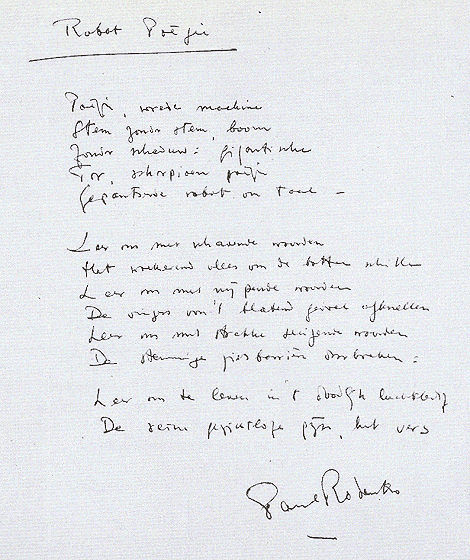 Robot Poëzie
Poëzie, wrede machine
Stem zonder stem, boom
Zonder schaduw: gigantische
Tor, schorpioen poëzie
Gepantserde robot van taal –
Leer ons met schavende woorden
Het woekerend vlees van de botten schillen
Leer ons met nijpende woorden
De vingers van 't blatend gevoel afknellen
Leer ons met strakke suizende woorden
De stemmige pijsbarrière doorbreken:
Leer ons te leven in 't dodelijk luchtledig
De reine gezichtsloze pijn, het vers
Paul Rodenko